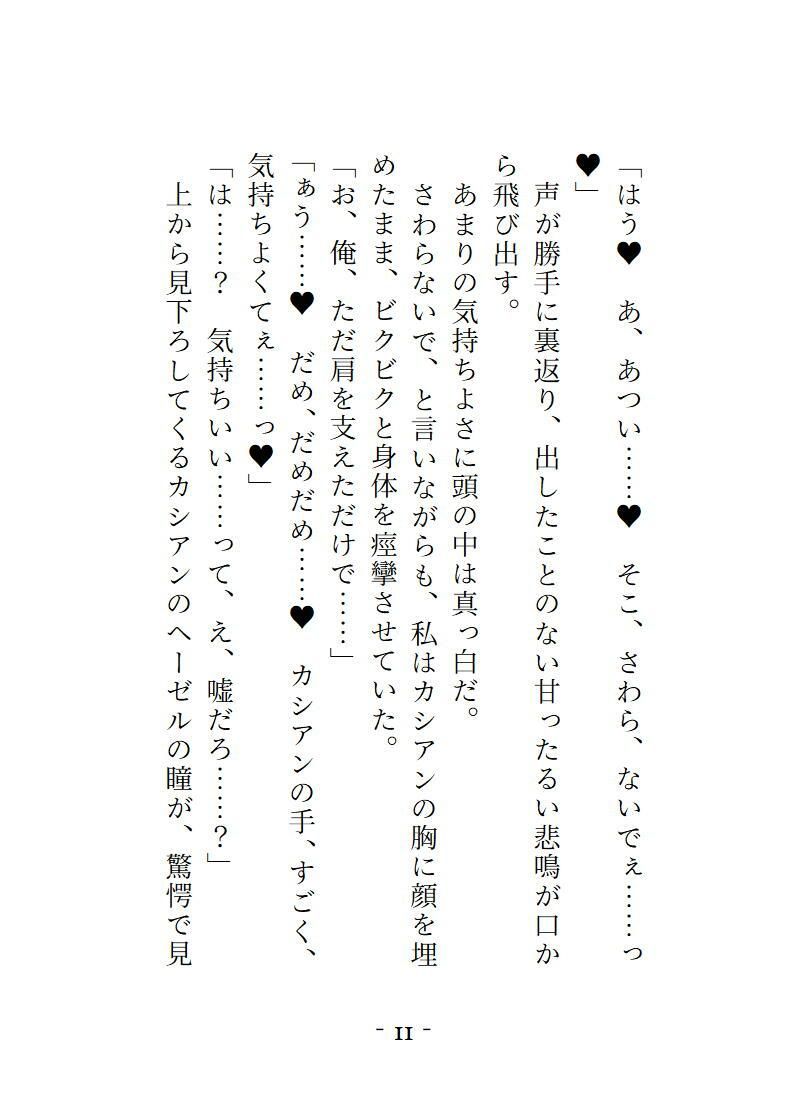 「はう♥　あ、あつい……♥　そこ、さわら、ないでぇ……っ
♥」
　声が勝手に裏返り、出したことのない甘ったるい悲鳴が口か
ら飛び出す。
　あまりの気持ちよさに頭の中は真っ白だ。
　さわらないで、と言いながらも、私はカシアンの胸に顔を埋
めたまま、ビクビクと身体を痙攣させていた。
「お、俺、ただ肩を支えただけで……」
「ぁう……♥　だめ、だめだめ……♥　カシアンの手、すごく、
気持ちよくてぇ……っ♥」
「は……？　気持ちいい……って、え、嘘だろ……？」
　上から見下ろしてくるカシアンのヘーゼルの瞳が、驚愕で見
- 11 -